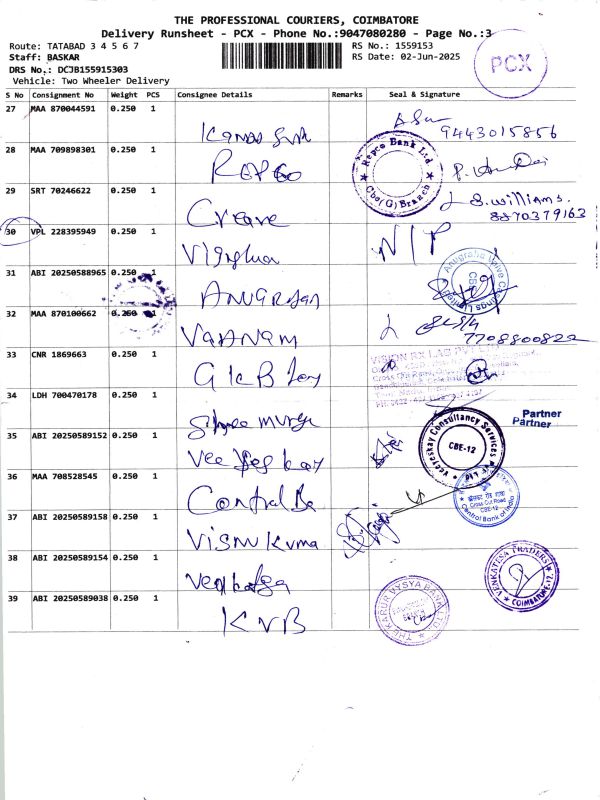 THE PROFESSIONAL COURIERS, COIMBATORE
Delivery Runsheet - PCX - Phone No.:9047080280 - Page No.:3
Route: TATABAD 3 4 5 6 7
RS No.: 1559153
Staff: BASKAR
RS Date: 02-Jun-2025
PCX
DRS No.: DCJB155915303
Vehicle: Two Wheeler Delivery
S No Consignment No Weight PCS Consignee Details Remarks Seal & Signature
27 MAA 870044591 0.250 1
9443015856
28 MAA 709898301 0.250 1
Repco Bank Ltd
Cbe(G) Branch
29 SRT 70246622 0.250 1
Creave
S. Williams.
8870379163
30 VPL 228395949 0.250 1
N/P
31 ABI 20250588965 0.250 1
32 MAA 870100662 0.250 1
7708800822
33 CNR 1869663 0.250 1
34 LDH 700470178 0.250 1
Partner
Partner
35 ABI 20250589152 0.250 1
Consultancy Services
CBE-12
36 MAA 708528545 0.250 1
Central Ba
Cross Cut Road
CBE-12
Central Bank of India
37 ABI 20250589158 0.250 1
Visnu Kuma
38 ABI 20250589154 0.250 1
VENKATESA TRADERS
COIMBATORE-12.
39 ABI 20250589038 0.250 1
KVB
THE KARUR VYSYA BANK LTD